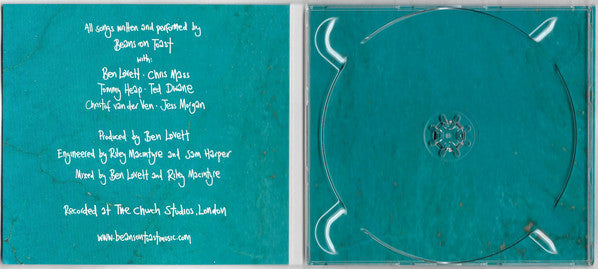 All songs written and performed by
Beans on Toast
with:
Ben Lovett · Chris Mass
Tommy Heap · Ted Dwane
Christof van der Ven · Jess Morgan
Produced by Ben Lovett
Engineered by Riley Macintyre and Sam Harper
Mixed by Ben Lovett and Riley Macintyre
Recorded at The Church Studios, London
www.beansontoastmusic.com